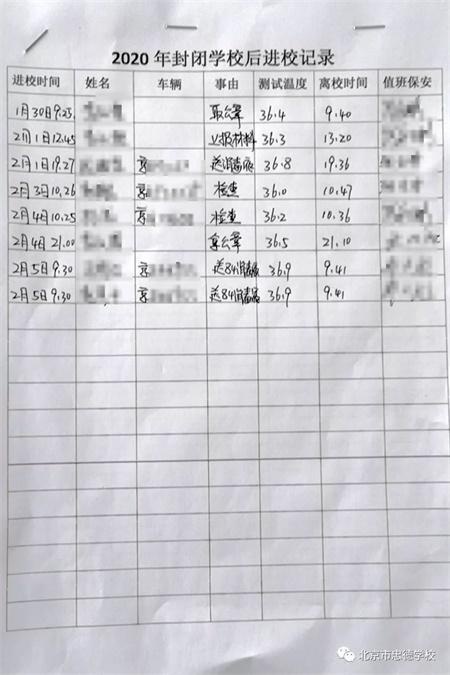 2020 年封闭学校后进校记录
进校时间 姓名 车辆 事由 测试温度 离校时间 值班保安
1月30日9.25 取公章 36.4 9.40
2月1日12.45 上报材料 36.3 13.20
2月1日19.27 京 送消毒液 36.8 19.36
2月3日10.26 京 检查 36.0 10.47
2月4日10.25 京 检查 36.2 10.36
2月4日21.00 拿公章 36.5 21.10
2月5日9.30 京 送84消毒液 36.9 9.41
2月5日9.30 京 送84消毒液 36.9 9.41
北京市忠德学校